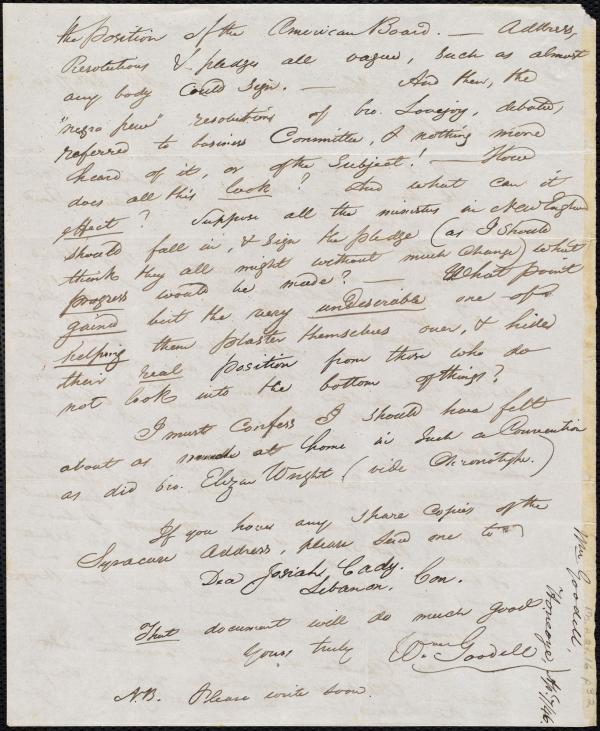 the position of the American Board. — Address,
Resolutions & pledges all vague, such as almost
any body could sign. — And then, the
"negro pew" resolutions of bro. Lovejoy, debated,
referred to business Committee, & nothing more
heard of it, or of the subject! — How
does all this look? And what can it
effect? Suppose all the ministers in New England
should fall in, & sign the pledge (as I should
think they all might without much change) what
progress would be made? — What point
gained but the very undesirable one of
helping them plaster themselves over, & hide
their real position from those who do
not look into the bottom of things?
I must confess I should have felt
about as much at home in such a Convention
as did bro. Elizur Wright (vide Chronotype.)
If you have any spare copies of the
Syracuse Address, please send me to
Dea Josiah Cady.
Lebanon, Con.
That document will do much good
Yours truly Wm Goodell
N.B. Please write soon.
Wm Goodell,
Honeoye,